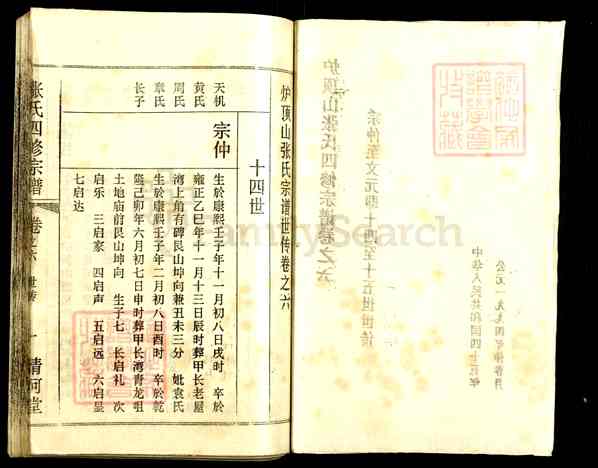 炉顶山张氏四修宗谱卷之六
公元一九九四年仲春月
中华人民共和国四十五年
炉顶山张氏宗谱世传卷之六
十四世
天机
黄氏
周氏
章氏
长子
宗仲
生於康熙壬子年十一月初八日戌时 卒於
雍正乙巳年十一月十三日辰时葬甲长老屋
湾上角有碑艮山坤向兼丑未三分 妣袁氏
生於康熙壬子年二月初八日酉时 卒於乾
隆己卯年六月初七日申时葬甲长湾青龙咀
土地庙前艮山坤向 生子七 长启礼 次
启乐 三启家 四启声 五启远 六启显
七启达
张氏四修宗谱 卷之六 世传 一 清河堂
FamilySearch